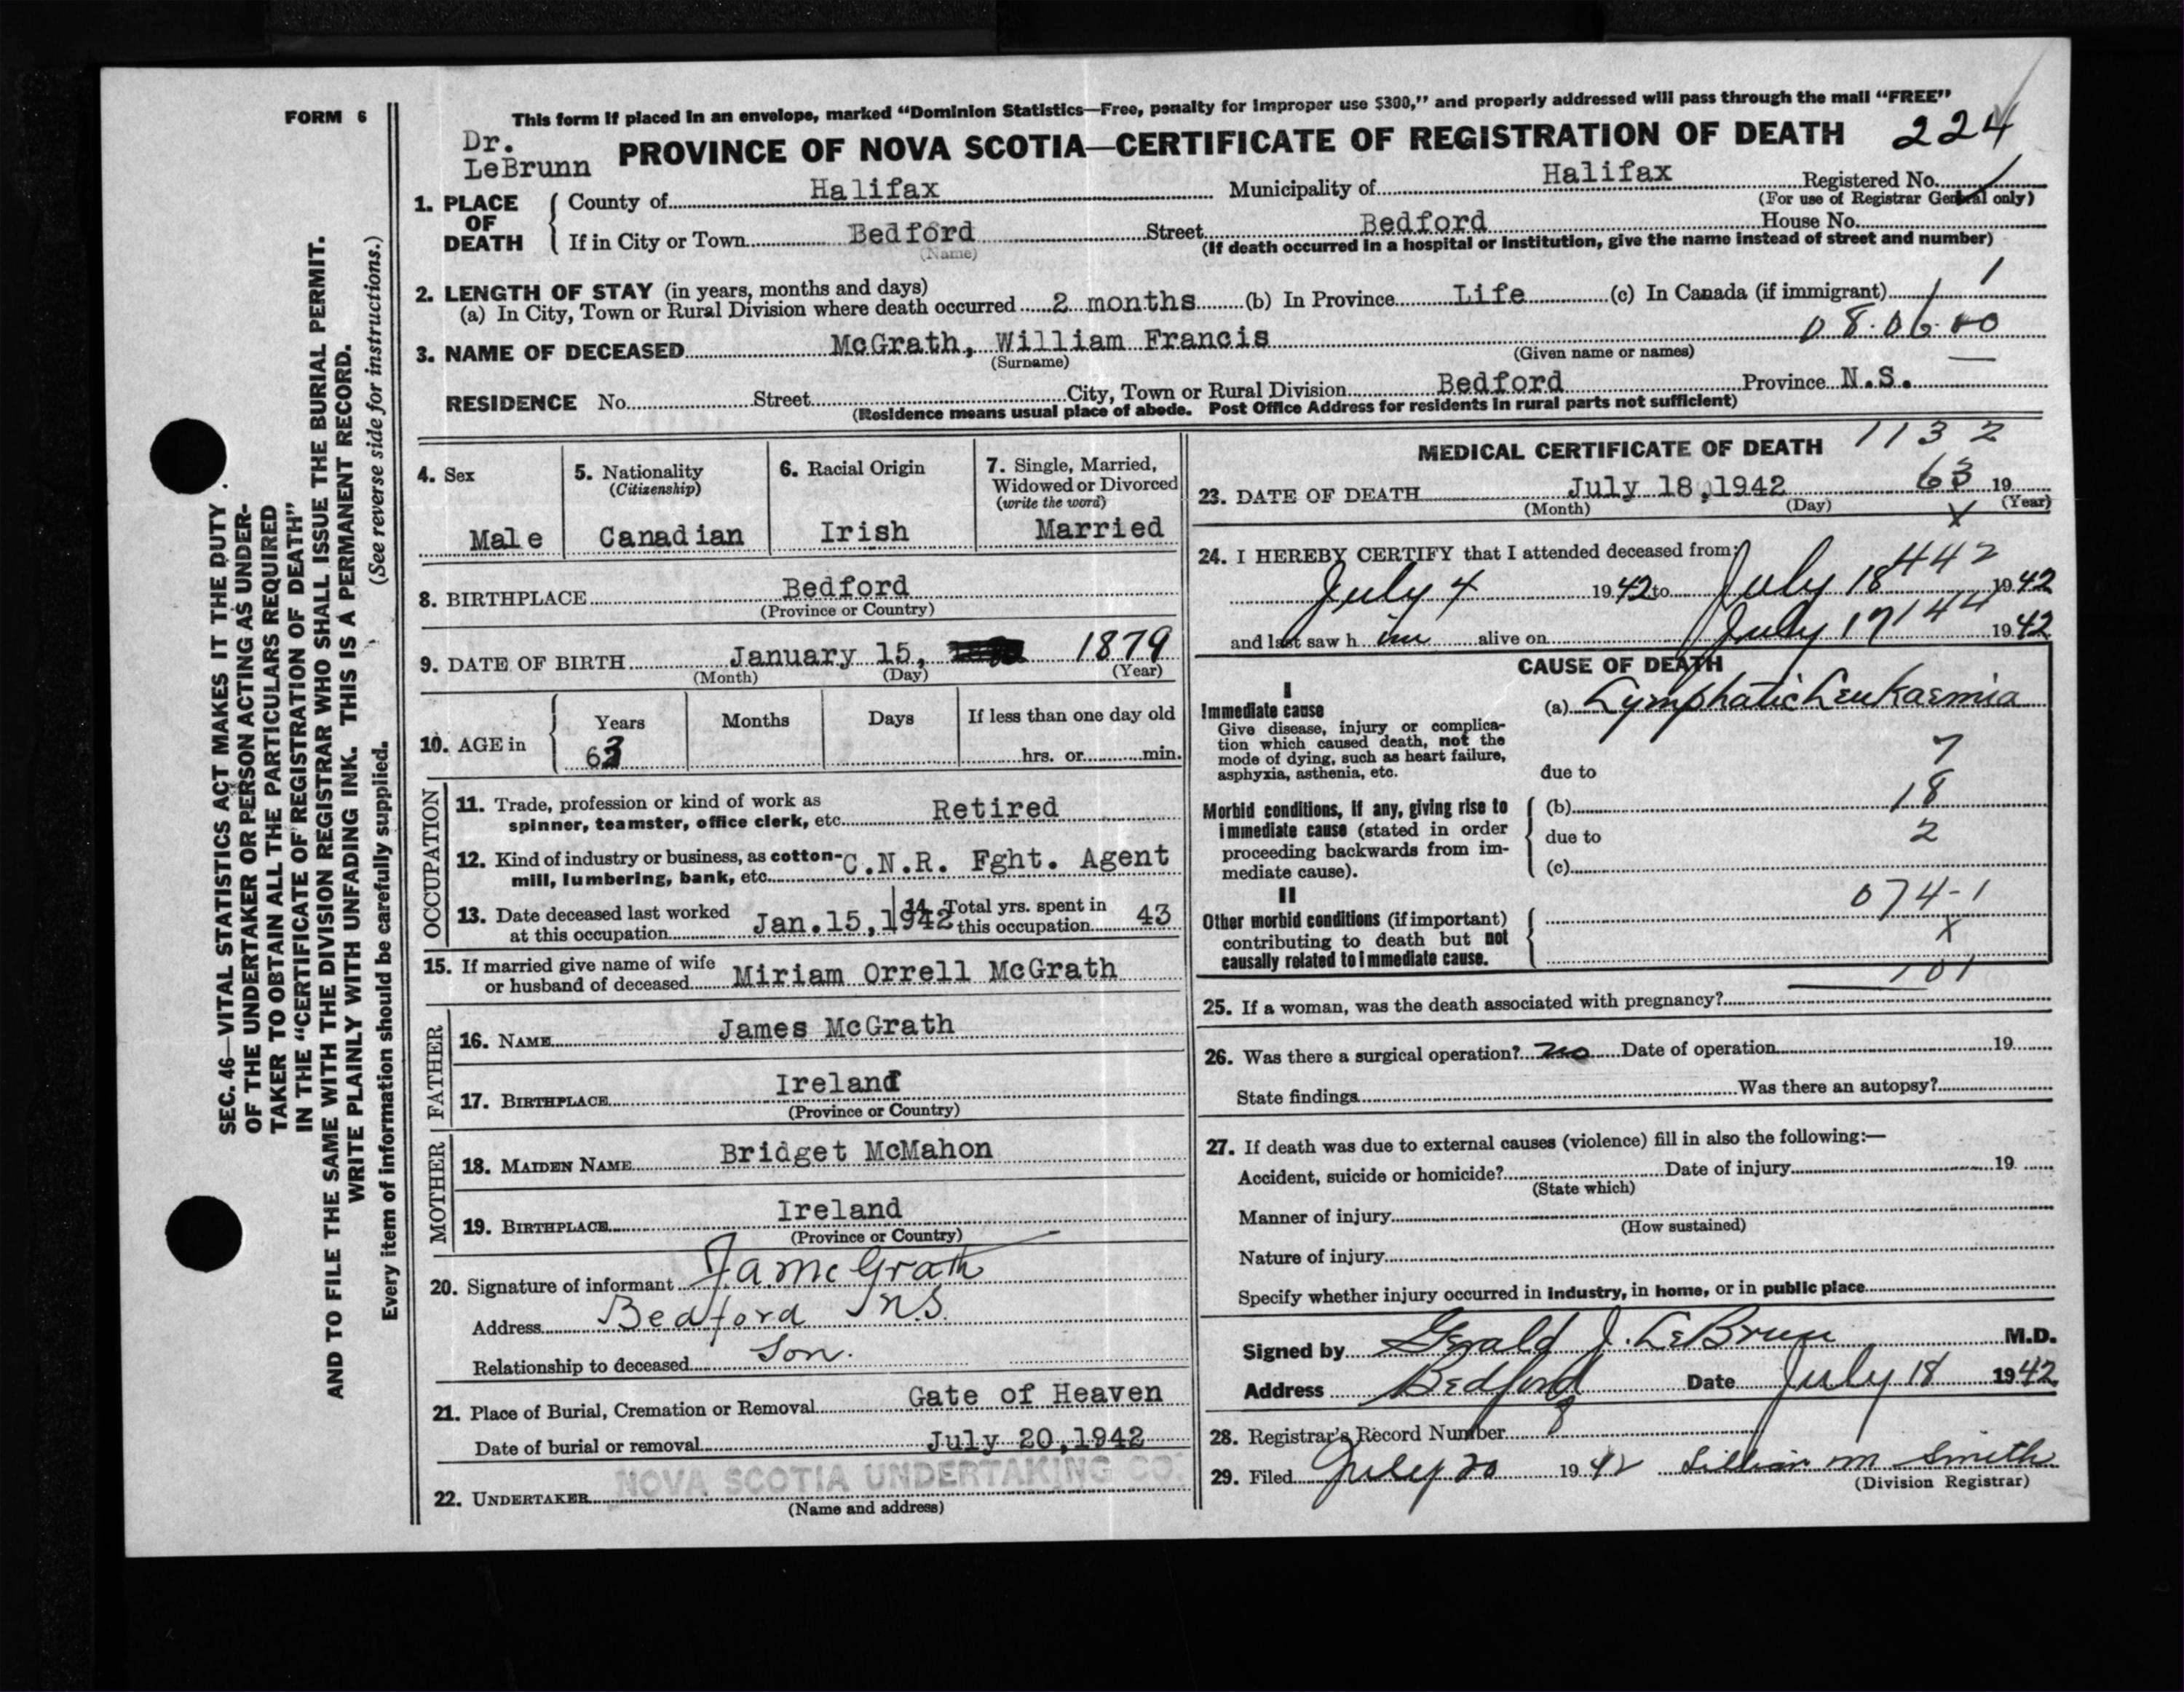 FORM 6
This form if placed in an envelope, marked “Dominion Statistics—Free, penalty for improper use $300,” and properly addressed will pass through the mail “FREE”
Dr.
LeBrunn
PROVINCE OF NOVA SCOTIA—CERTIFICATE OF REGISTRATION OF DEATH 224
1. PLACE OF DEATH
County of Halifax Municipality of Halifax Registered No.
(For use of Registrar General only)
If in City or Town Bedford Street Bedford House No.
(Name) (If death occurred in a hospital or institution, give the name instead of street and number)
2. LENGTH OF STAY (in years, months and days)
(a) In City, Town or Rural Division where death occurred 2 months (b) In Province Life (c) In Canada (if immigrant) 1
08.06.00
3. NAME OF DECEASED McGrath, William Francis
(Surname) (Given name or names)
RESIDENCE No. Street City, Town or Rural Division Bedford Province N.S.
(Residence means usual place of abode. Post Office Address for residents in rural parts not sufficient)
4. Sex
Male
5. Nationality
(Citizenship)
Canadian
6. Racial Origin
Irish
7. Single, Married,
Widowed or Divorced
(write the word)
Married
8. BIRTHPLACE Bedford
(Province or Country)
9. DATE OF BIRTH January 15, 1879
(Month) (Day) (Year)
10. AGE in
Years Months Days If less than one day old
63 hrs. or min.
OCCUPATION
11. Trade, profession or kind of work as
spinner, teamster, office clerk, etc. Retired
12. Kind of industry or business, as cotton-
mill, lumbering, bank, etc. C.N.R. Fght. Agent
13. Date deceased last worked
at this occupation Jan.15,1942
14. Total yrs. spent in
this occupation 43
15. If married give name of wife
or husband of deceased Miriam Orrell McGrath
FATHER
16. NAME James McGrath
17. BIRTHPLACE Ireland
(Province or Country)
MOTHER
18. MAIDEN NAME Bridget McMahon
19. BIRTHPLACE Ireland
(Province or Country)
20. Signature of informant McGrath
Address Bedford N.S.
Relationship to deceased Son.
21. Place of Burial, Cremation or Removal Gate of Heaven
Date of burial or removal July 20,1942
22. UNDERTAKER NOVA SCOTIA UNDERTAKING CO.
(Name and address)
MEDICAL CERTIFICATE OF DEATH 1132
23. DATE OF DEATH July 18,1942 63 19
(Month) (Day) (Year)
X
24. I HEREBY CERTIFY that I attended deceased from:
442
July 4 1942 to July 18 1942
144
and last saw h im alive on July 17 1942
CAUSE OF DEATH
I
Immediate cause
Give disease, injury or complica-
tion which caused death, not the
mode of dying, such as heart failure,
asphyxia, asthenia, etc.
(a) Lymphatic Leukaemia
7
due to
Morbid conditions, if any, giving rise to
immediate cause (stated in order
proceeding backwards from im-
mediate cause).
(b) 18
due to 2
(c)
II
Other morbid conditions (if important)
contributing to death but not
causally related to immediate cause.
074-1
X
101
25. If a woman, was the death associated with pregnancy?
26. Was there a surgical operation? no Date of operation 19
State findings Was there an autopsy?
27. If death was due to external causes (violence) fill in also the following:—
Accident, suicide or homicide? Date of injury 19
(State which)
Manner of injury
(How sustained)
Nature of injury
Specify whether injury occurred in industry, in home, or in public place
Signed by Gerald J. LeBrun M.D.
Address Bedford Date July 18 1942
28. Registrar's Record Number 8
29. Filed July 20 1942 Lillian M Smith
(Division Registrar)
SEC. 46—VITAL STATISTICS ACT MAKES IT THE DUTY
OF THE UNDERTAKER OR PERSON ACTING AS UNDER-
TAKER TO OBTAIN ALL THE PARTICULARS REQUIRED
IN THE “CERTIFICATE OF REGISTRATION OF DEATH”
AND TO FILE THE SAME WITH THE DIVISION REGISTRAR WHO SHALL ISSUE THE BURIAL PERMIT.
WRITE PLAINLY WITH UNFADING INK. THIS IS A PERMANENT RECORD.
(See reverse side for instructions.)
Every item of information should be carefully supplied.